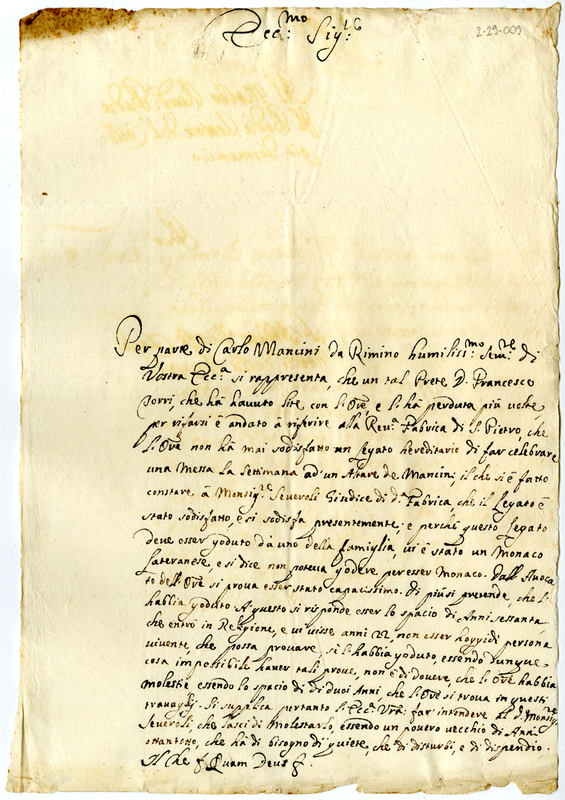 2-29-009
Ecc:mo Sig:re
Per parte di Carlo Mancini da Rimino humiliss:mo Serv:re di
Vostra Ecc:a si rappresenta, che un tal Prete D. Francesco
Torri, che hà havuto lite con l'Ore e l'hà perduta più volte
per rifarsi è andato à riferire alla Reu: Fabrica di S. Pietro, che
l'Ore non hà mai sodisfatto un legato hereditario di far celebrare
una Messa la Settimana ad un Altare de Mancini, il che si è fatto
constare à Monsig:re Severoli Giudice di d:a Fabrica, che il Legato è
stato sodisfatto, e si sodisfa presentemente, e perche questo legato
deve esser goduto dà uno della famiglia vi è stato un Monaco
Lateranese, e si dice non poteva godere per esser Monaco. Dall'Avoca
to dell'Ore si prova esser stato capacissimo. Di più si pretende, che l'
habbia goduto. A questo si risponde esser lo spacio di Anni sessanta,
che entrò in Religione, e vi visse anni 22, non esser hoggidì persona
vivente, che possa provare, se l'habbia goduto, essendo dunque
cosa impossibile haver tali prove, non è di dovere, che l'Ore habbia
molestie essendo lo spacio di duoi Anni, che l'Ore si trova in questi
travagli. Si supplica pertanto l'Ecc: Vra: far intendere al d: Monsig:re
Severoli, che lasci di molestarlo, essendo un povero vecchio di Anni
ottantotto, che hà di bisogno di quiete, che di disturbi, e di dispendio.
Il che Quam Deus